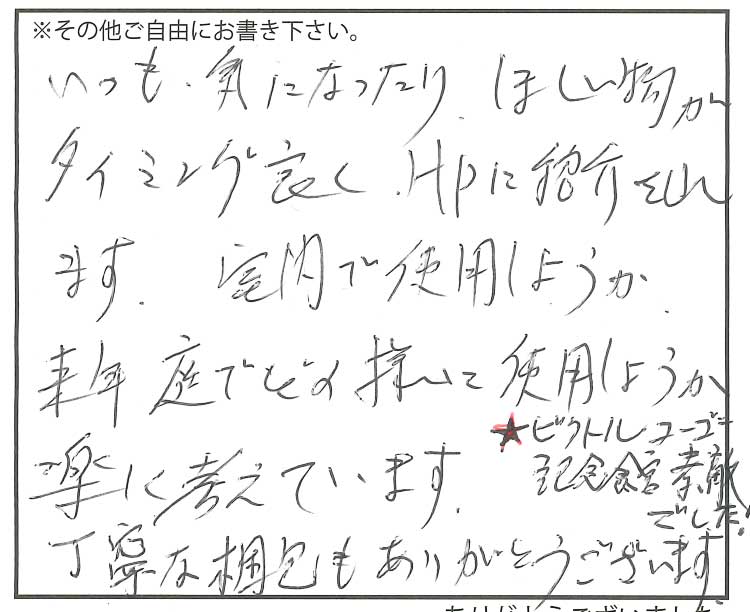 ※その他ご自由にお書き下さい。
いつも、気になったり、ほしい物が
タイミング良く、HPに紹介され
ます。 室内で使用しようか、
来年 庭でどの様に使用しようか
楽に考えています。
★ビクトルユーゴー
記念館 素敵
でした!
丁寧な梱包もありがとうございます
ありがとうございました